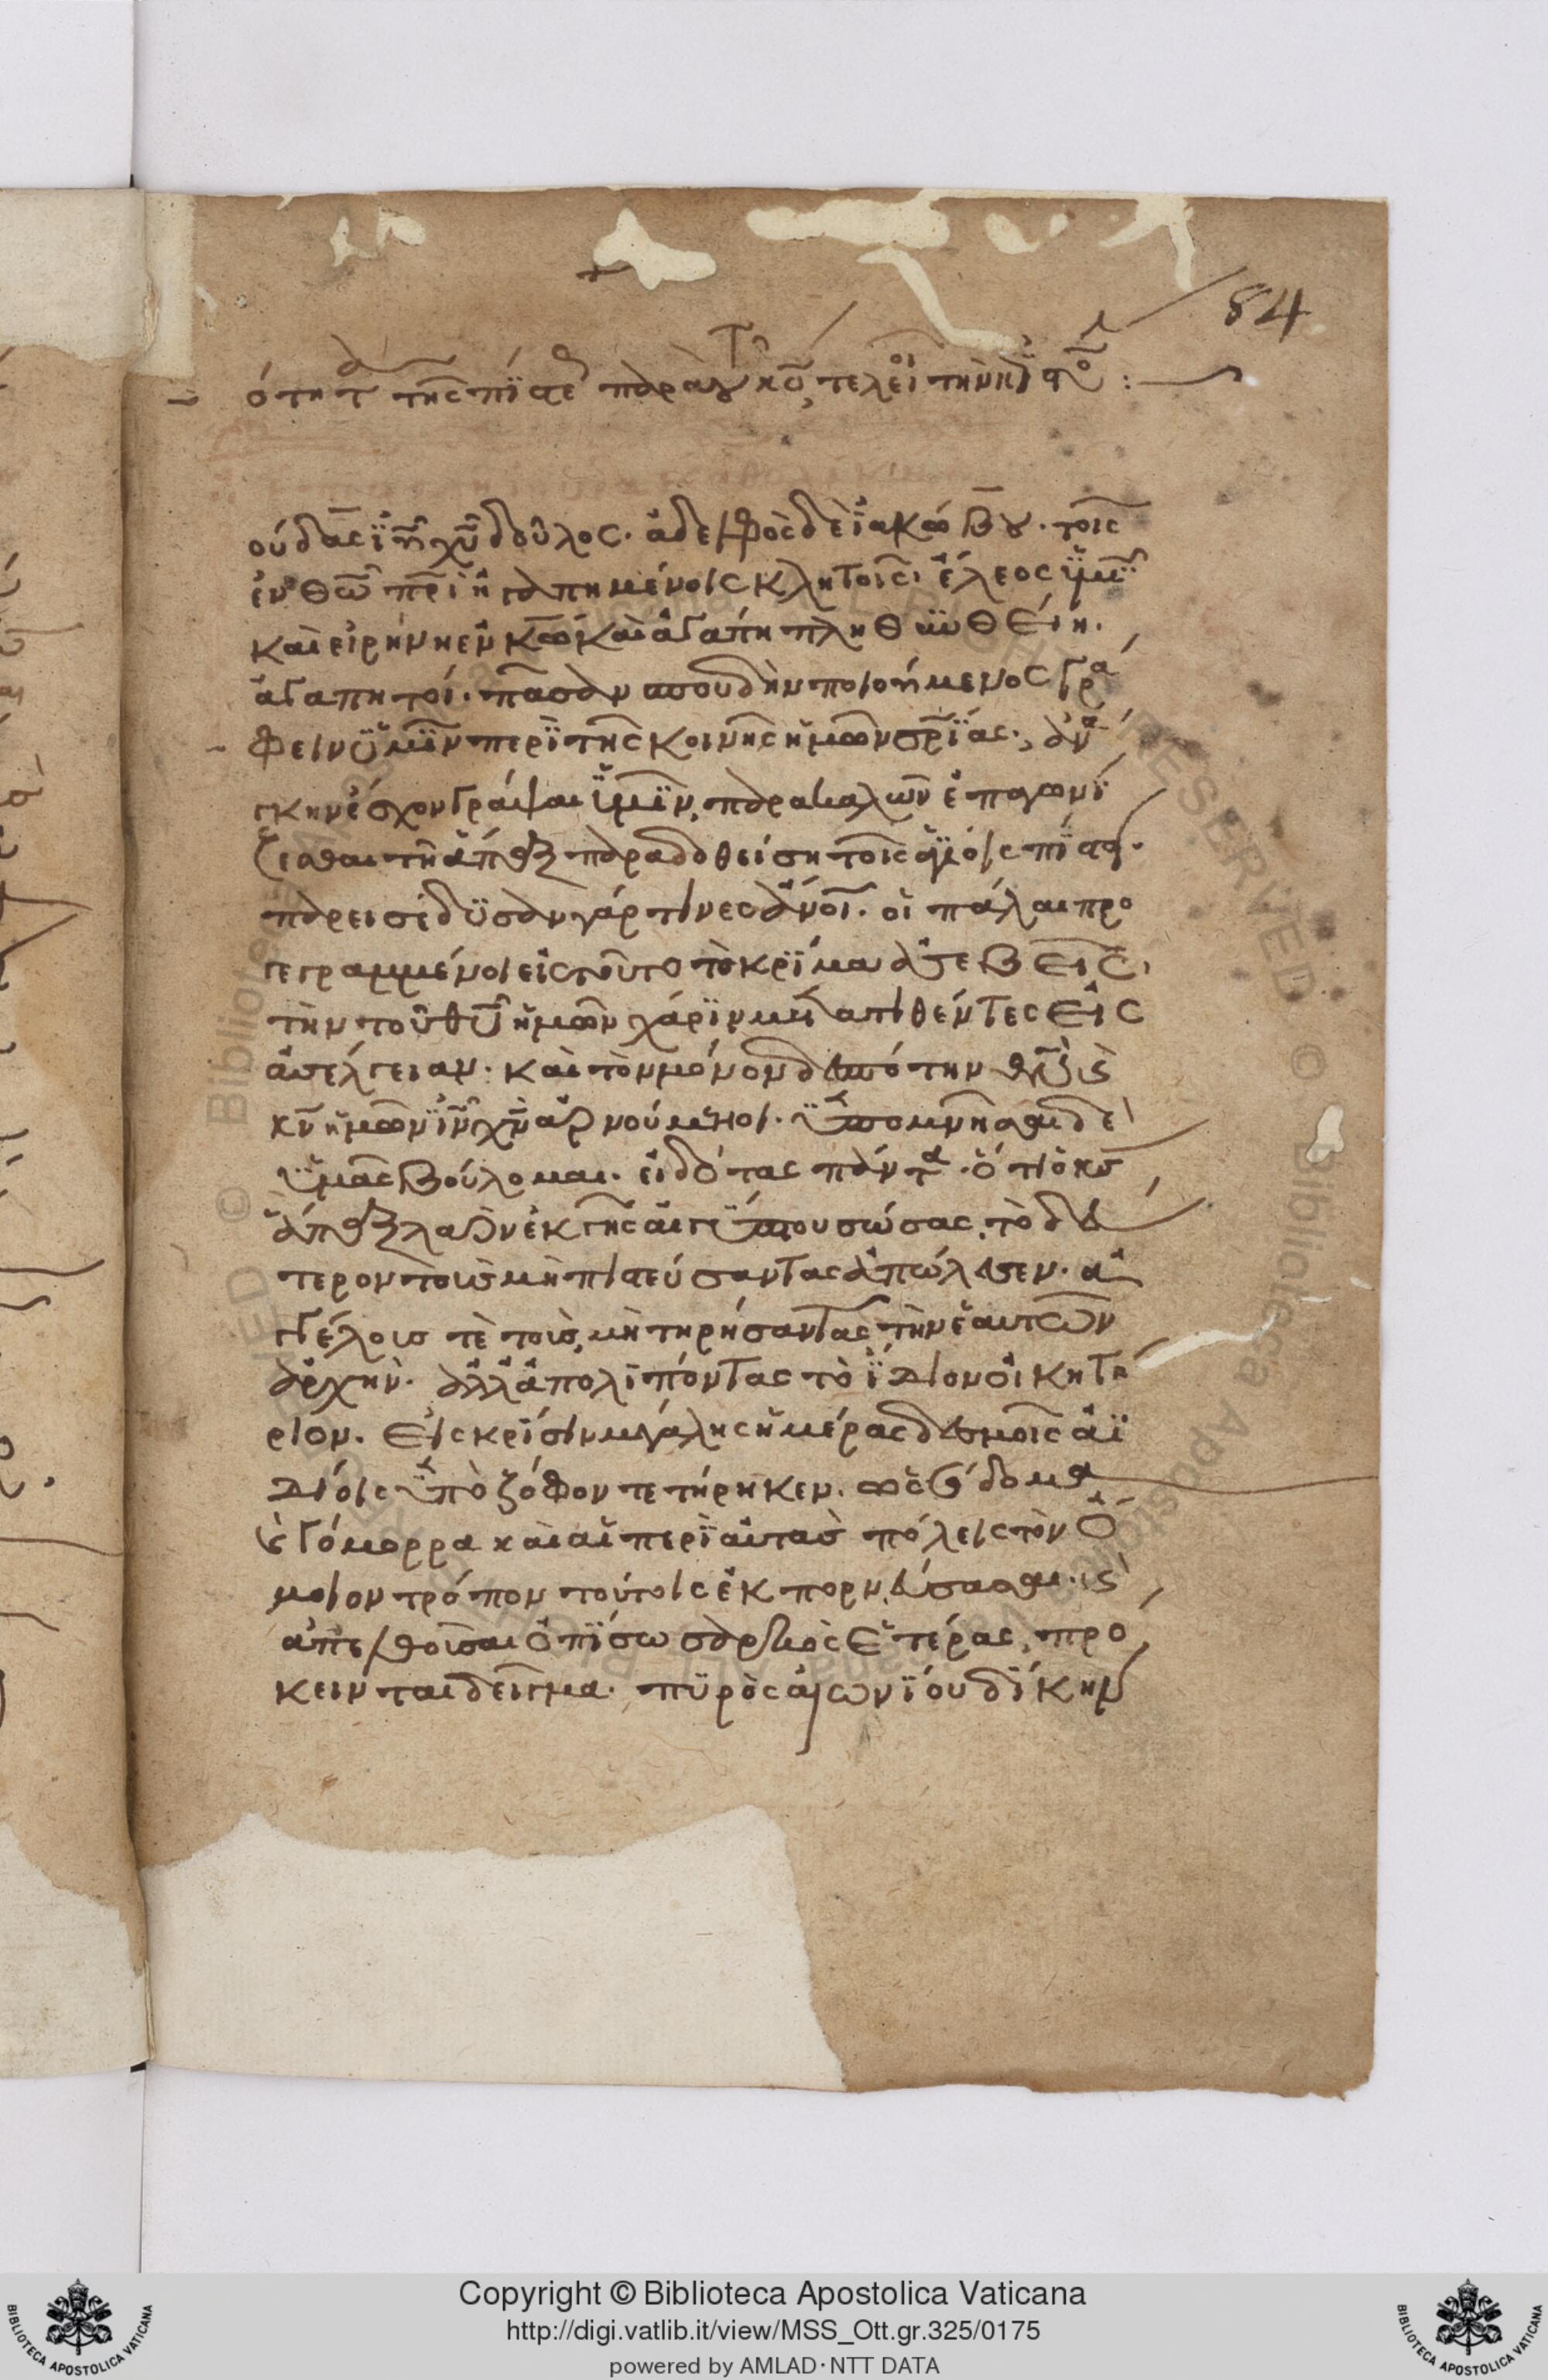 84
ούδας ϊῦ χῦ δοῦλος. ἀδελφὸς δὲ ϊακώβου. τοῖς
ἐν θῶ πρϊ ἠγαπημένοις κλητοῖς. ἔλεος ϋμῖν
καὶ εἰρήνη ἐν κῶ καὶ ἀγάπη πληθυνθείη.
ἀγαπητοί. πᾶσαν σπουδὴν ποιούμενος γρά
φειν ϋμῖν περϊ τῆς κοινῆς ἡμῶν σρϊας., ἀνά
γκην ἔσχον γράψαι ϋμῖν, παρακαλῶν ἐπαγωνϊ
ζεσθαι τῆ ἅπαξ παραδοθείση τοῖς ἁγϊοις πϊστει.
παρεισέδυσαν γάρ τινες ἄνοι. οἱ πάλαι προ
γεγραμμένοι εἰς τοῦτο τὸ κρϊμα ἀσεβεῖς,
τὴν τοῦ θῦ ἡμῶν χάριν μετατιθέντες εἰς
ἀσέλγειαν. καὶ τὸν μόνον δεσπότην θν ϗ
κν ἡμῶν ϊν χν ἀρνούμενοι. ϋπομνῆσαι δὲ
ϋμᾶς βούλομαι. εἰδότας πάντα. ὅτι ὁ κς
ἅπαξ λαὸν ἐκ γῆς αἰγϋπτου σώσας, τὸ δεύ
τερον τοὺς μὴ πιστεύσαντας ἀπώλεσεν. ἀγ
γέλους τὲ τοὺς, μὴ τηρήσαντας, τὴν ἑαυτῶν
ἀρχὴν. ἀλλὰ ἀπολϊπόντας τὸ ϊδιον οἰκητή
ριον. εἰς κρϊσιν μεγάλης ἡμέρας δεσμοῖς ἀϊ
δίοις ϋπὸ ζόφον τετήρηκεν. ὡς σόδομα
ϗ γόμορρα καὶ αἱ περϊ αὐτὰς πόλεις τὸν ὅ
μοιον τρόπον τούτοις ἐκπορνεύσασαι. ϗ
ἀπελθοῦσαι ὀπϊσω σαρκὸς ἑτέρας, πρό
κεινται δεῖγμα. πϋρὸς αἰωνϊου δϊκην
Copyright © Biblioteca Apostolica Vaticana
http://digi.vatlib.it/view/MSS_Ott.gr.325/0175
powered by AMLAD·NTT DATA
BIBLIOTECA APOSTOLICA VATICANA
BIBLIOTECA APOSTOLICA VATICANA